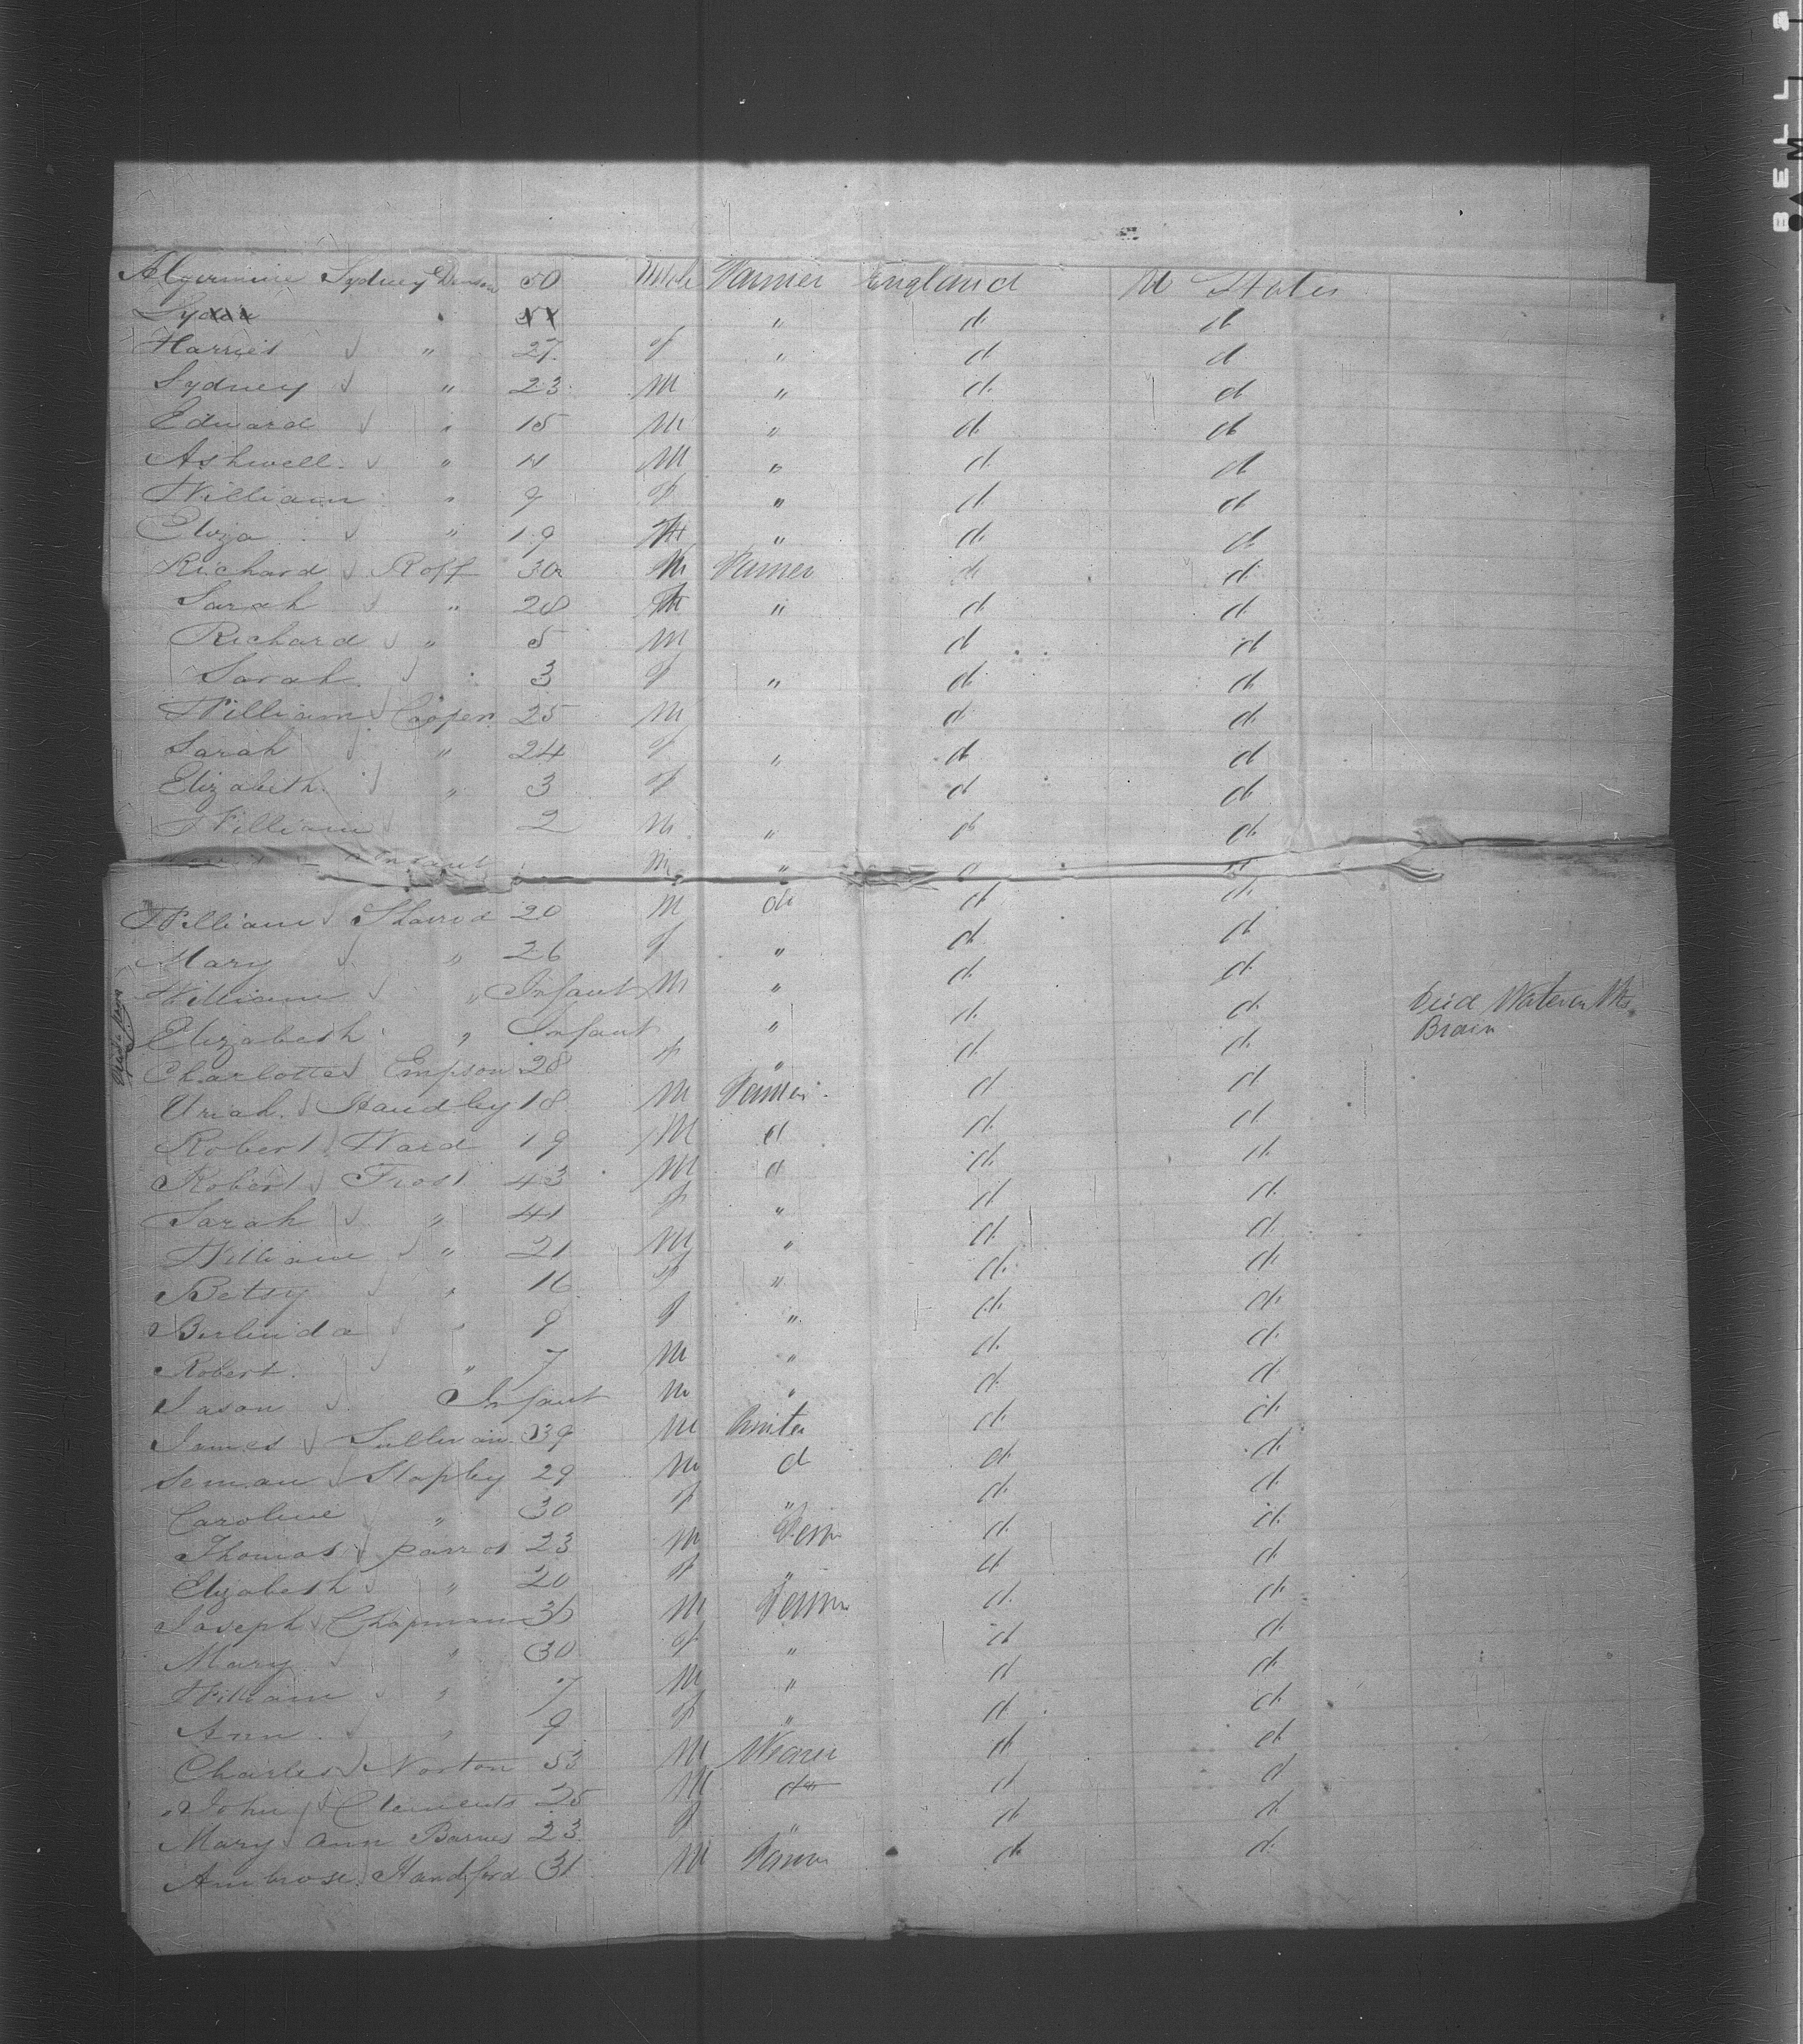 Algernine Sydney Denson 50 Male Farmer England U States
Sydxxx " xx " d d
Harriet " 27 f " d d
Sydney " 23 M " d d
Edward " 15 M " d d
Ashwell " 11 M " d d
William " 9 f " d d
Eliza " 19 " d d
Richard Roff 30 M Farmer d d
Sarah " 28 " d d
Richard " 5 M d d
Sarah " 3 f " d d
William Cooper 25 M d d
Sarah " 24 f " d d
Elizabeth " 3 f d d
William 2 M " d d
Infant M " d d
William Sharrd 20 M do d d
Mary " 26 f " d d
William " Infant M " d d Died Water on the
Elizabeth " Infant " d d Brain
Charlotte Empson 28 f " d d
Uriah Handley 18 M Farmer d d
Robert Ward 19 M d d d
Robert Frost 43 M d d d
Sarah " 41 f " d d
William " 21 M " d d
Betsy " 16 f " d d
Berlinda " 9 f " d d
Robert " 7 M " d d
Jason Infant M " d d
James Sullivan 39 M d d
Seman Stapley 29 M d d d
Caroline " 30 f " d d
Thomas parrot 23 M Farm d d
Elizabeth " 20 f " d d
Joseph Chapman 36 M Farm d d
Mary " 30 f " d d
William " 7 M " d d
Ann " 9 f " d d
Charles Norton 53 M d d
John Clements 25 M do d d
Mary Ann Barnes 23 f " d d
Ambrose Handford 31 M Farm d d
BELL &